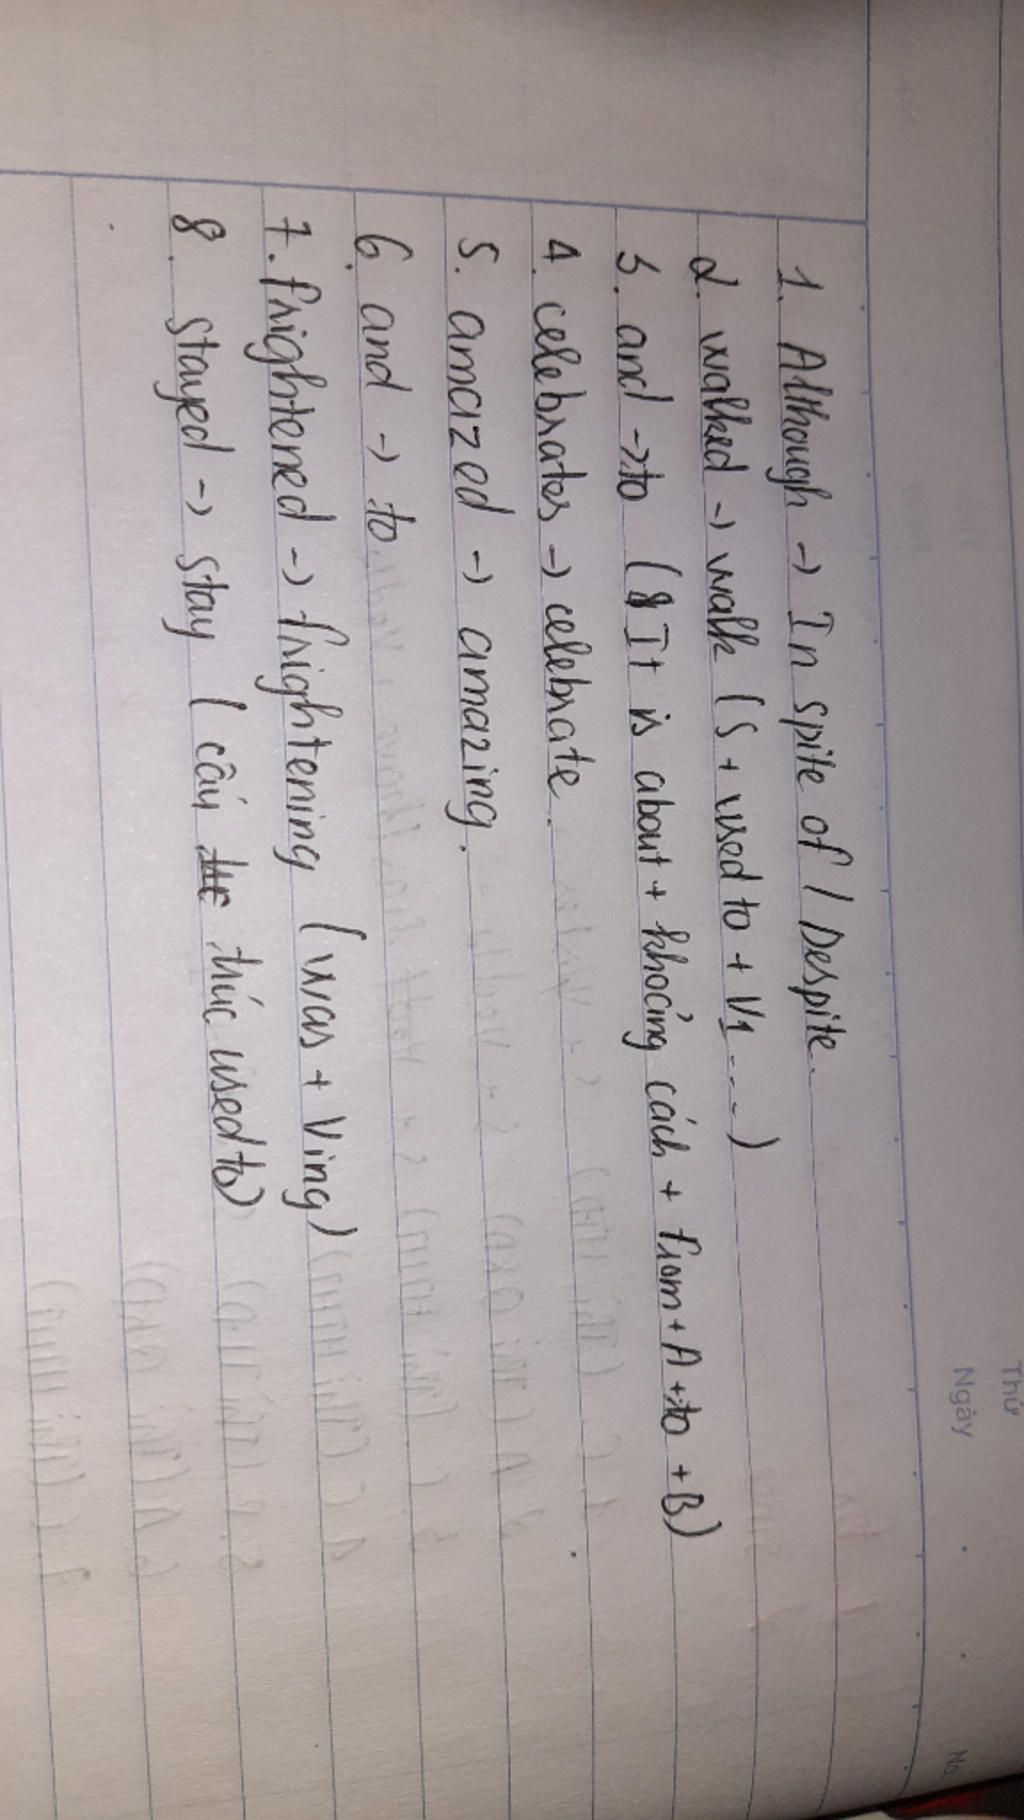 Thứ
Ngày
No
1. Although -> In spite of / Despite.
2. walked -> walk (S + used to + V1 ....)
3. and -> to ( It is about + khoảng cách + from + A + to + B)
4. celebrates -> celebrate.
5. amazed -> amazing.
6. and -> to
7. frightened -> frightening (was + Ving)
8. stayed -> stay (cấu trúc used to)